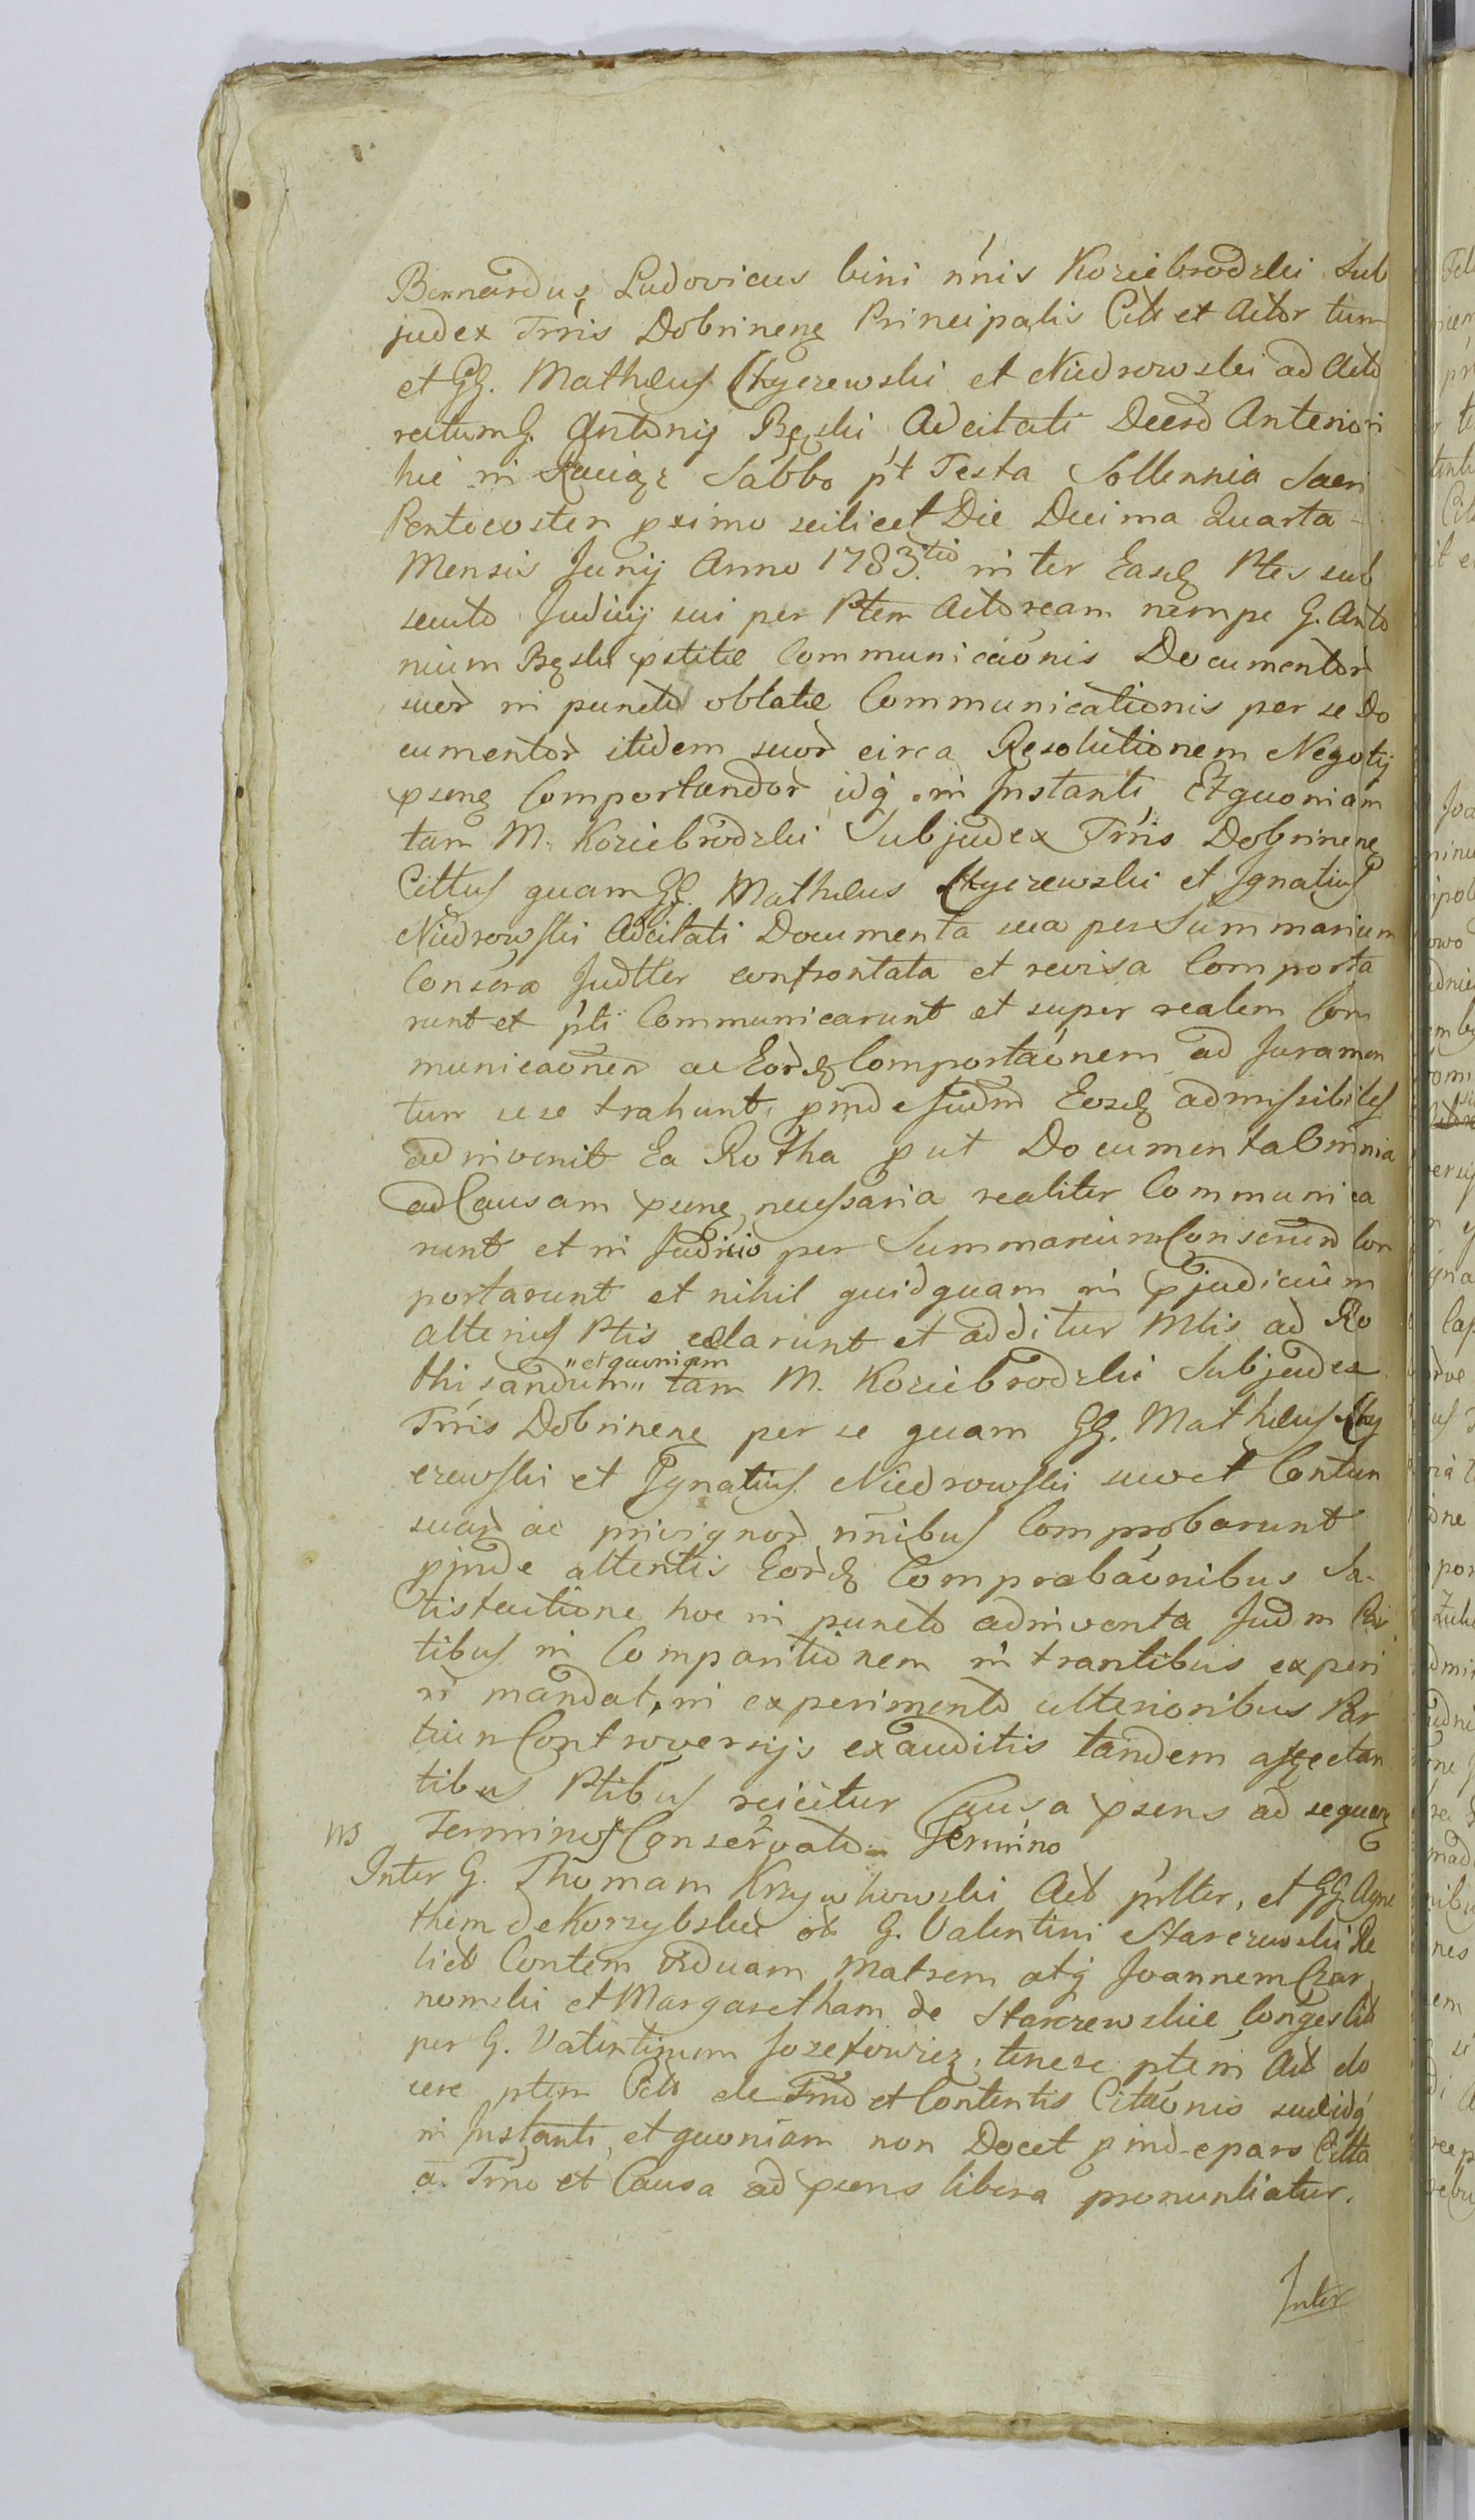 Bernardus Ludovicus bini nnis Koziebrodzki Sub
judex Trris Dobrinens Principalis Citt et Actor tum
et GG. Mathæus Ctyczewski et Niedrowski ad Acto
ratum G. Antonij Bęski Adcitati Decrto Anteriori
hic in Raciąz Sabbo pt Festa Sollennia Sacri
Pentecosten pximo scilicet Die Decima Quarta
Mensis Junij Anno 1783.tio inter Easdq Ptes sub
secuto Judicij sui per Ptem Actoream nempe G. Anto
nium Bęski pstitæ Communicaonis Documentor
suor in puncto oblatæ Communicationis per se Do
cumentor itidem suor circa Resolutionem Negotij
psens Comportandor idq in Instanti, Et quoniam
tam M. Koziebrodzki Subjudex Trris Dobrinens
Cittus quam GG. Mathæus Ctyczewski et Ignatius
Niedrowski Adcitati Documenta sua per Summarium
Conscra Judtler confrontata et revisa Comporta
runt et pti Communicarunt et super realem Com
municaonem ac Eordq Comportaonem ad Juramen
tum sese trahunt, pinde Judm Eosdq admissibiles
adinvenit Ea Rotha put Documenta Omnia
ad Causam psens necessaria realiter Communica
runt et in Judicio per Summarium Conscrund Com
portarunt et nihil quidquam in pjudicium
alterius Ptis celarunt et additur Mlis ad Ro
thisandum " et quoniam tam M. Koziebrodzki Subjudex
Trris Dobrinens per se quam GG. Mathæus Cty
czewski et Ignatius Niedrowski suo et Contum
suar ac privignor nnibus Comprobarunt
pinde attentis Eordq Comprobaonibus Sa-
tisfactione hoc in puncto adinventa Judm Par
tibus in Comparitionem intrantibus experi
ri mandat, in experimento ulterioribus Par
tium Controversijs exauditis tandem affectan
tibus Ptibus reicitur Causa psens ad sequen
Terminus Conservato Termino
Inter G. Thomam Krzywkowski Act pntter, et GG. Agne
them de Korzybskie ol G. Valentini Starczewski Re
lict Contem Viduam Matrem atq Joannem Czar
nomski et Margaretham de Starczewskie Conges Citt
per G. Valentinum Jozefowicz, tenere ptem Act do
cere ptem Citt de Tmo et Contentis Citaonis suæ idq
in Instanti, et quoniam non Docet pinde pars Citta
a Tmo et Causa ad psens libera pronuntiatur.
Inter